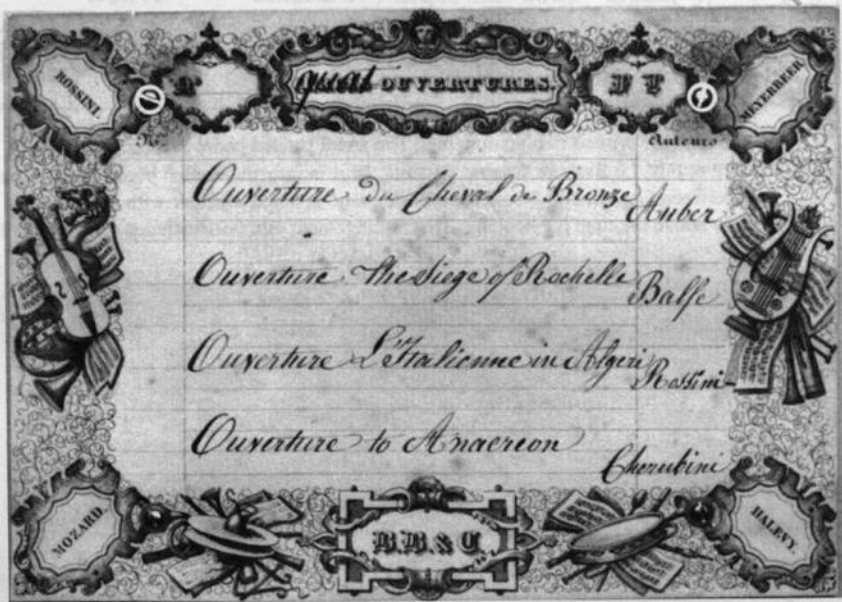 ROSSINI.
quat OUVERTURES.
MEYERBEER
No.
Auteurs
Ouverture du Cheval de Bronze Auber
Ouverture The Siege of Rochelle Balfe
Ouverture L'Italienne in Algeri Rossini
Ouverture to Anacreon
Cherubini
MOZARD.
B.B.& C.
HALEVY.